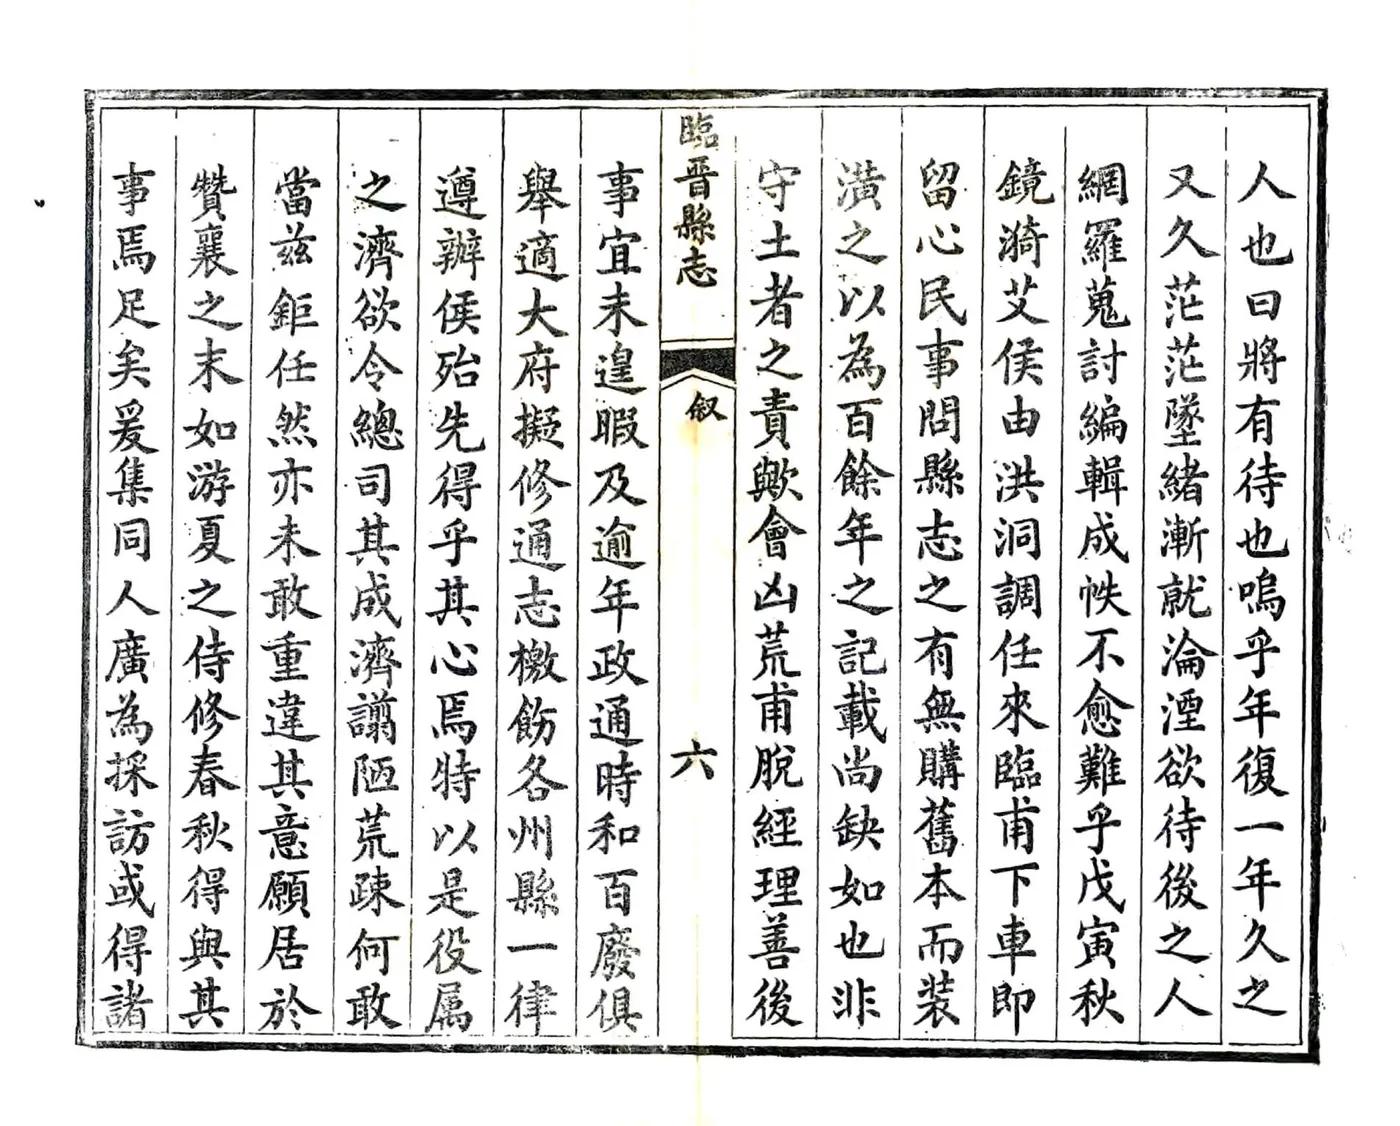 人也曰將有待也嗚乎年復一年久之
又久茫茫墜緒漸就淪湮欲待後之人
網羅蒐討編輯成帙不愈難乎戊寅秋
鏡漪艾侯由洪洞調任來臨甫下車即
留心民事問縣志之有無購舊本而裝
潢之以為百餘年之記載尚缺如也非
守土者之責歟會凶荒甫脫經理善後
臨晉縣志
叙
六
事宜未遑暇及逾年政通時和百廢俱
舉適大府擬修通志檄飭各州縣一律
遵辦侯殆先得乎其心焉特以是役属
之濟欲令總司其成濟謭陋荒疎何敢
當茲鉅任然亦未敢重違其意願居於
贊襄之末如游夏之侍修春秋得與其
事焉足矣爰集同人廣為採訪或得諸